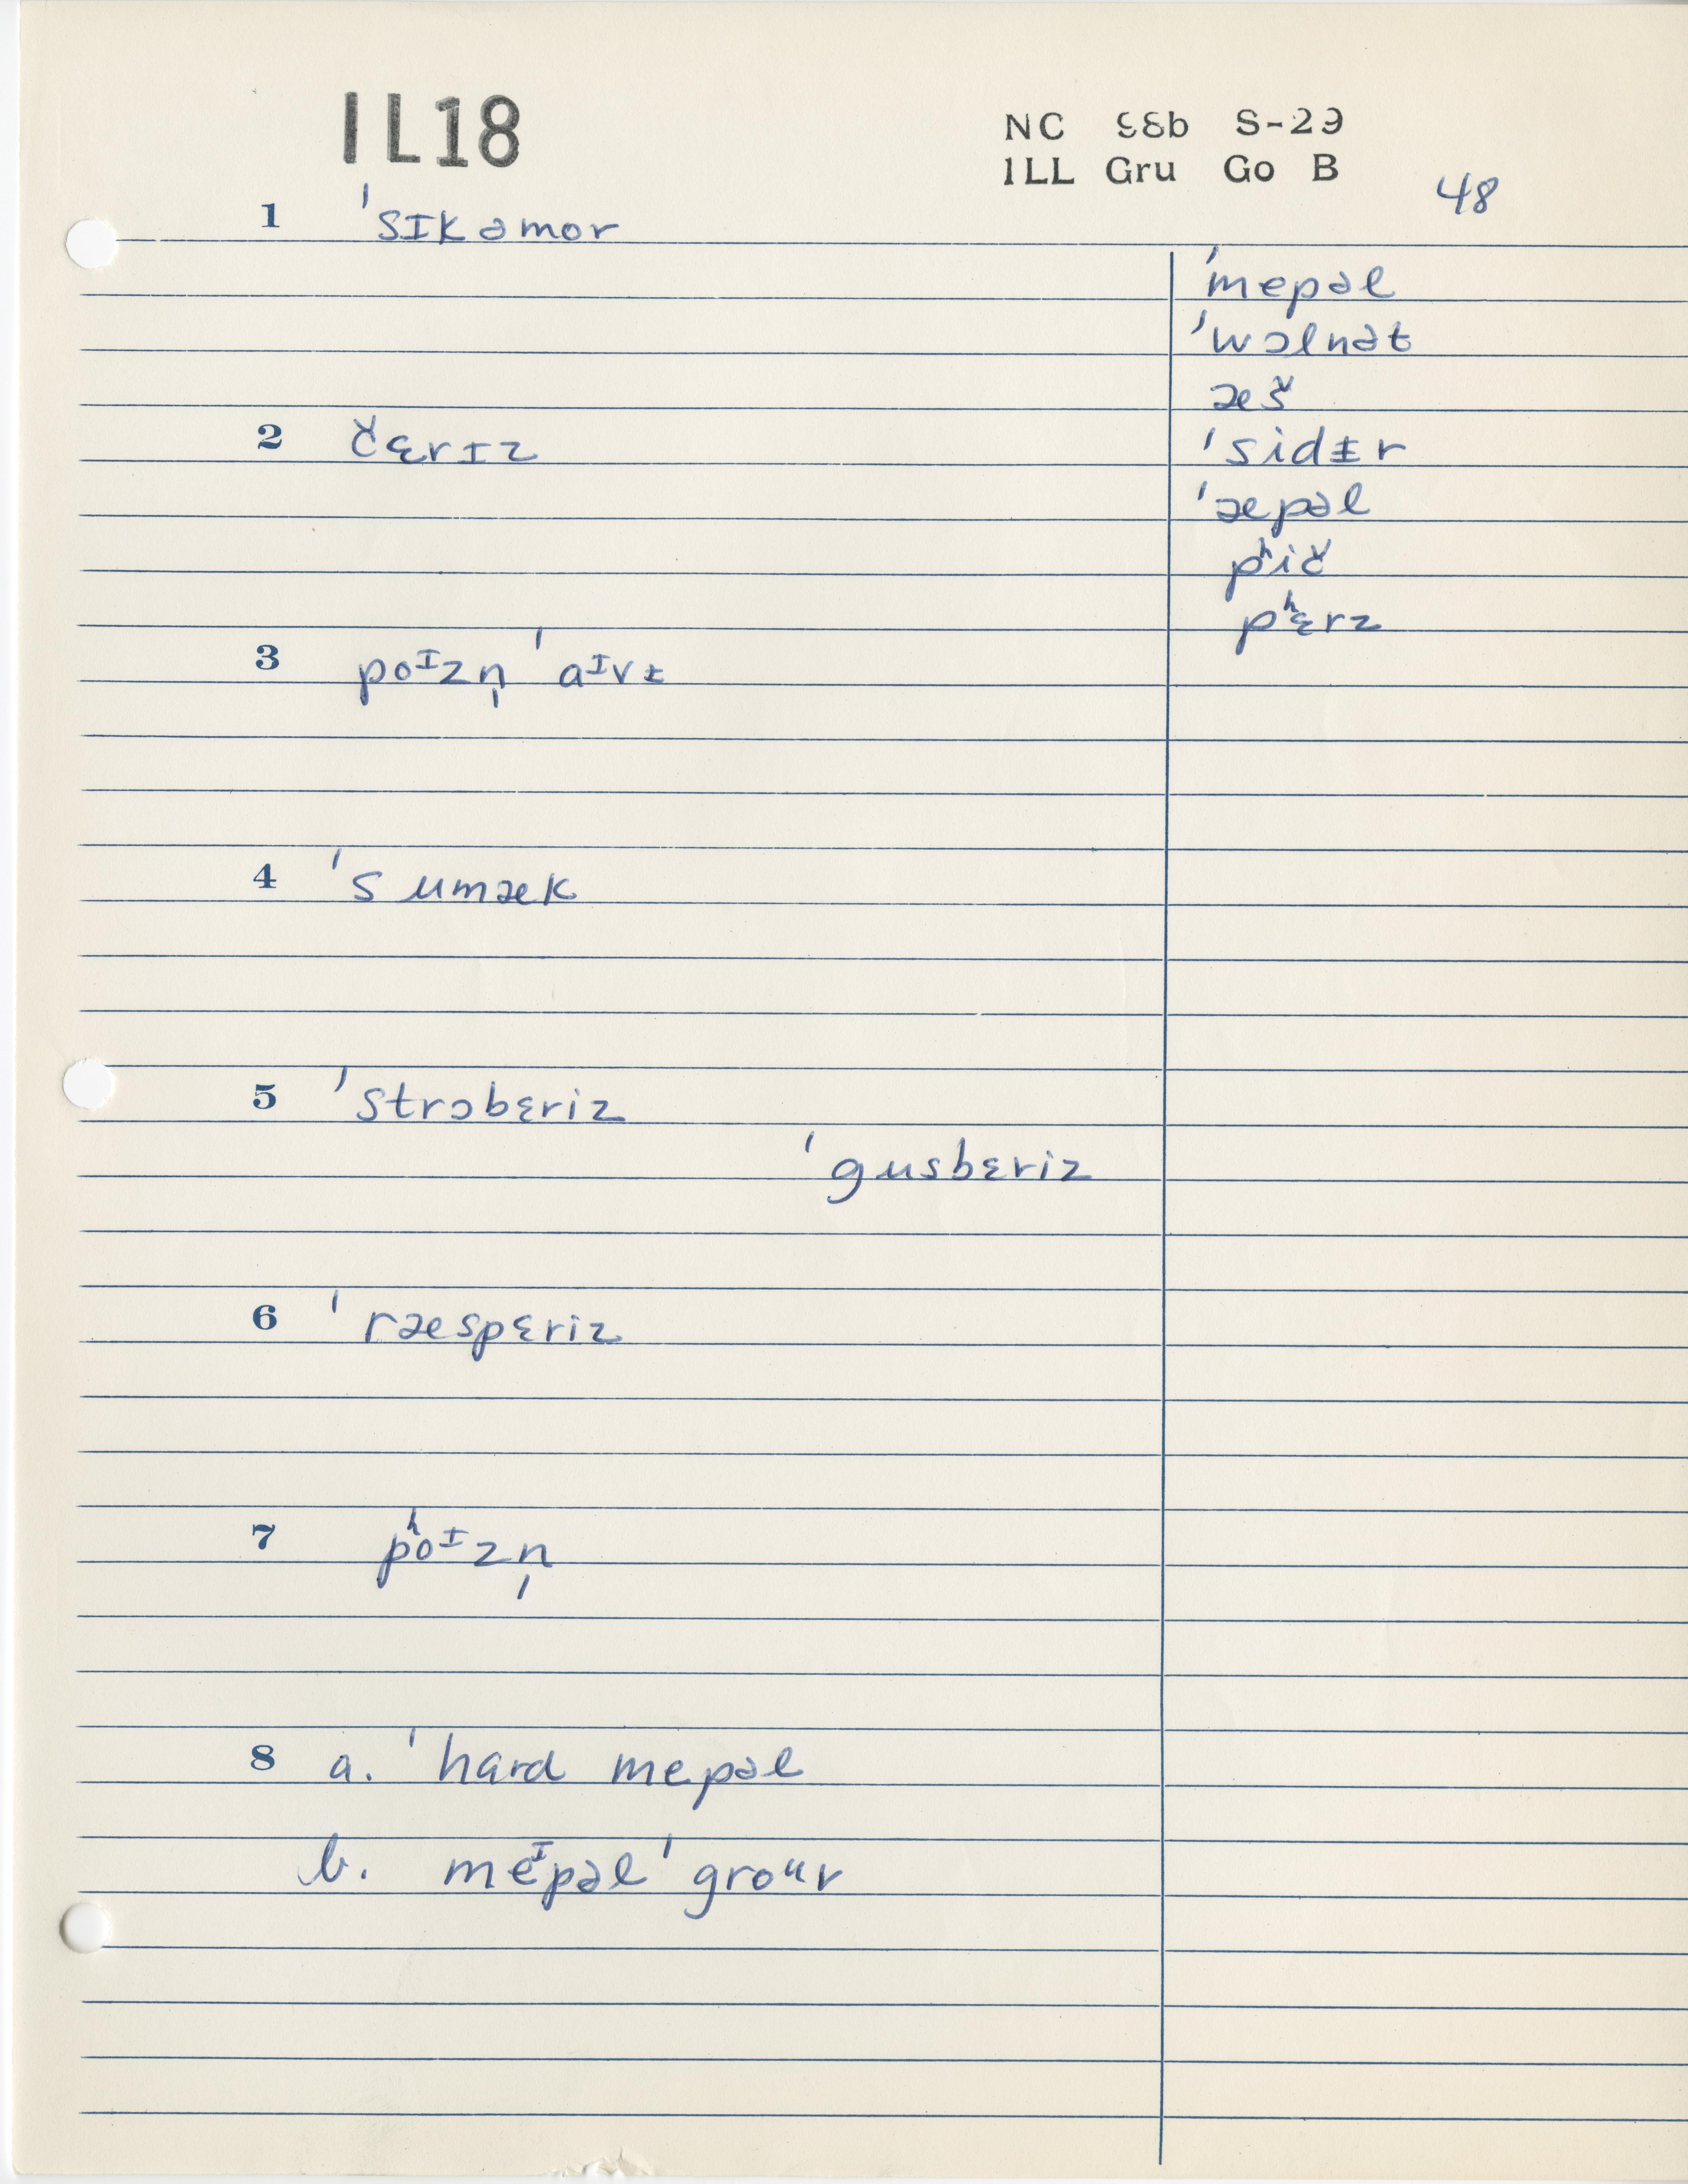 IL18
NC ƐƐb S-29
ILL Gru Go B
48
1 ˈsɪkəmor
ˈmepəl
ˈwɔlnət
æš
2 čɛrɪz
ˈsidɨr
ˈæpəl
pʰič
pʰɛrz
3 poᶦzn̩ ˈaᶦvɨ
4 ˈsumæk
5 ˈstrɔbɛriz
ˈgusbɛriz
6 ˈræspɛriz
7 pʰoᶦzn̩
8 a. ˈhard mepəl
b. meᶦpəl ˈgroᵘv